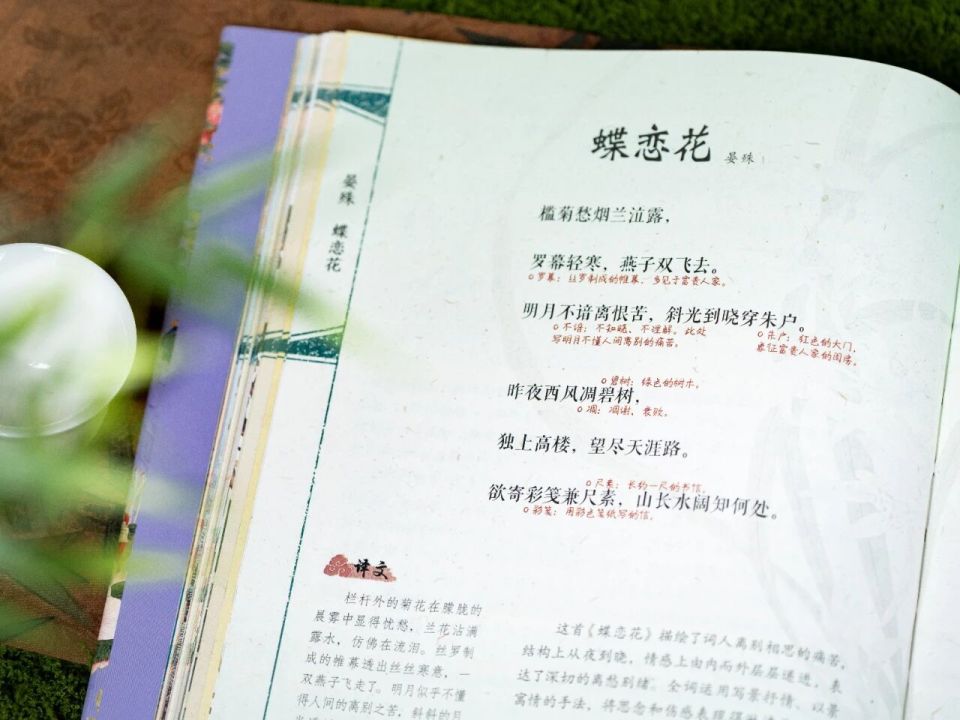 蝶恋花 晏殊
晏殊 蝶恋花
槛菊愁烟兰泣露，
罗幕轻寒，燕子双飞去。
罗幕：丝罗制成的帷幕，多见于富贵人家。
明月不谙离恨苦，斜光到晓穿朱户。
不谙：不知晓、不理解。此处
写明月不懂人间离别的痛苦。
朱户：红色的大门，
象征富贵人家的闺房。
碧树：绿色的树木。
昨夜西风凋碧树，
凋：凋谢、衰败。
独上高楼，望尽天涯路。
尺素：长约一尺的书信。
欲寄彩笺兼尺素，山长水阔知何处。
彩笺：用彩色笺纸写的信。
译文
栏杆外的菊花在朦胧的
晨雾中显得忧愁，兰花沾满
露水，仿佛在流泪。丝罗制
成的帷幕透出丝丝寒意，一
双燕子飞走了。明月似乎不懂
得人间的离别之苦，斜斜的月
这首《蝶恋花》描绘了词人离别相思的痛苦，
结构上从夜到晓，情感上由内而外层层递进，表
达了深切的离愁别绪。全词运用写景抒情、以景
寓情的手法，将思念和伤感表现得